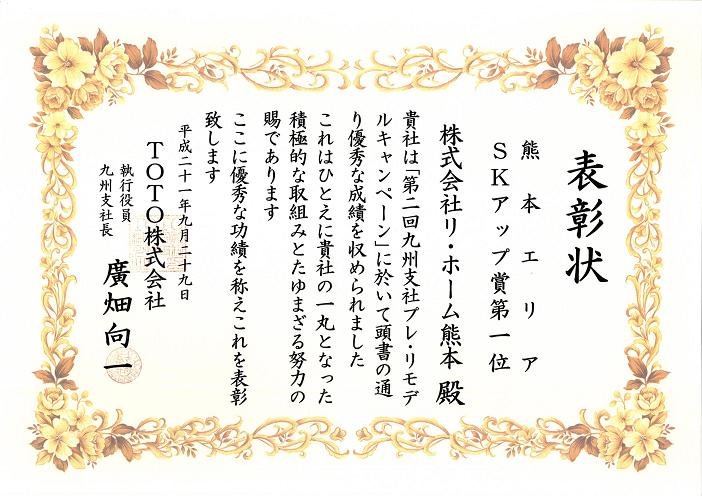 表彰状
熊本エリア
SKアップ賞第一位
株式会社リ・ホーム熊本 殿
貴社は「第二回九州支社プレ・リモデ
ルキャンペーン」に於いて頭書の通
り優秀な成績を収められました
これはひとえに貴社の一丸となった
積極的な取組みとたゆまざる努力の
賜であります
ここに優秀な功績を称えこれを表彰
致します
平成二十一年九月二十九日
TOTO株式会社
執行役員
九州支社長
廣畑向一